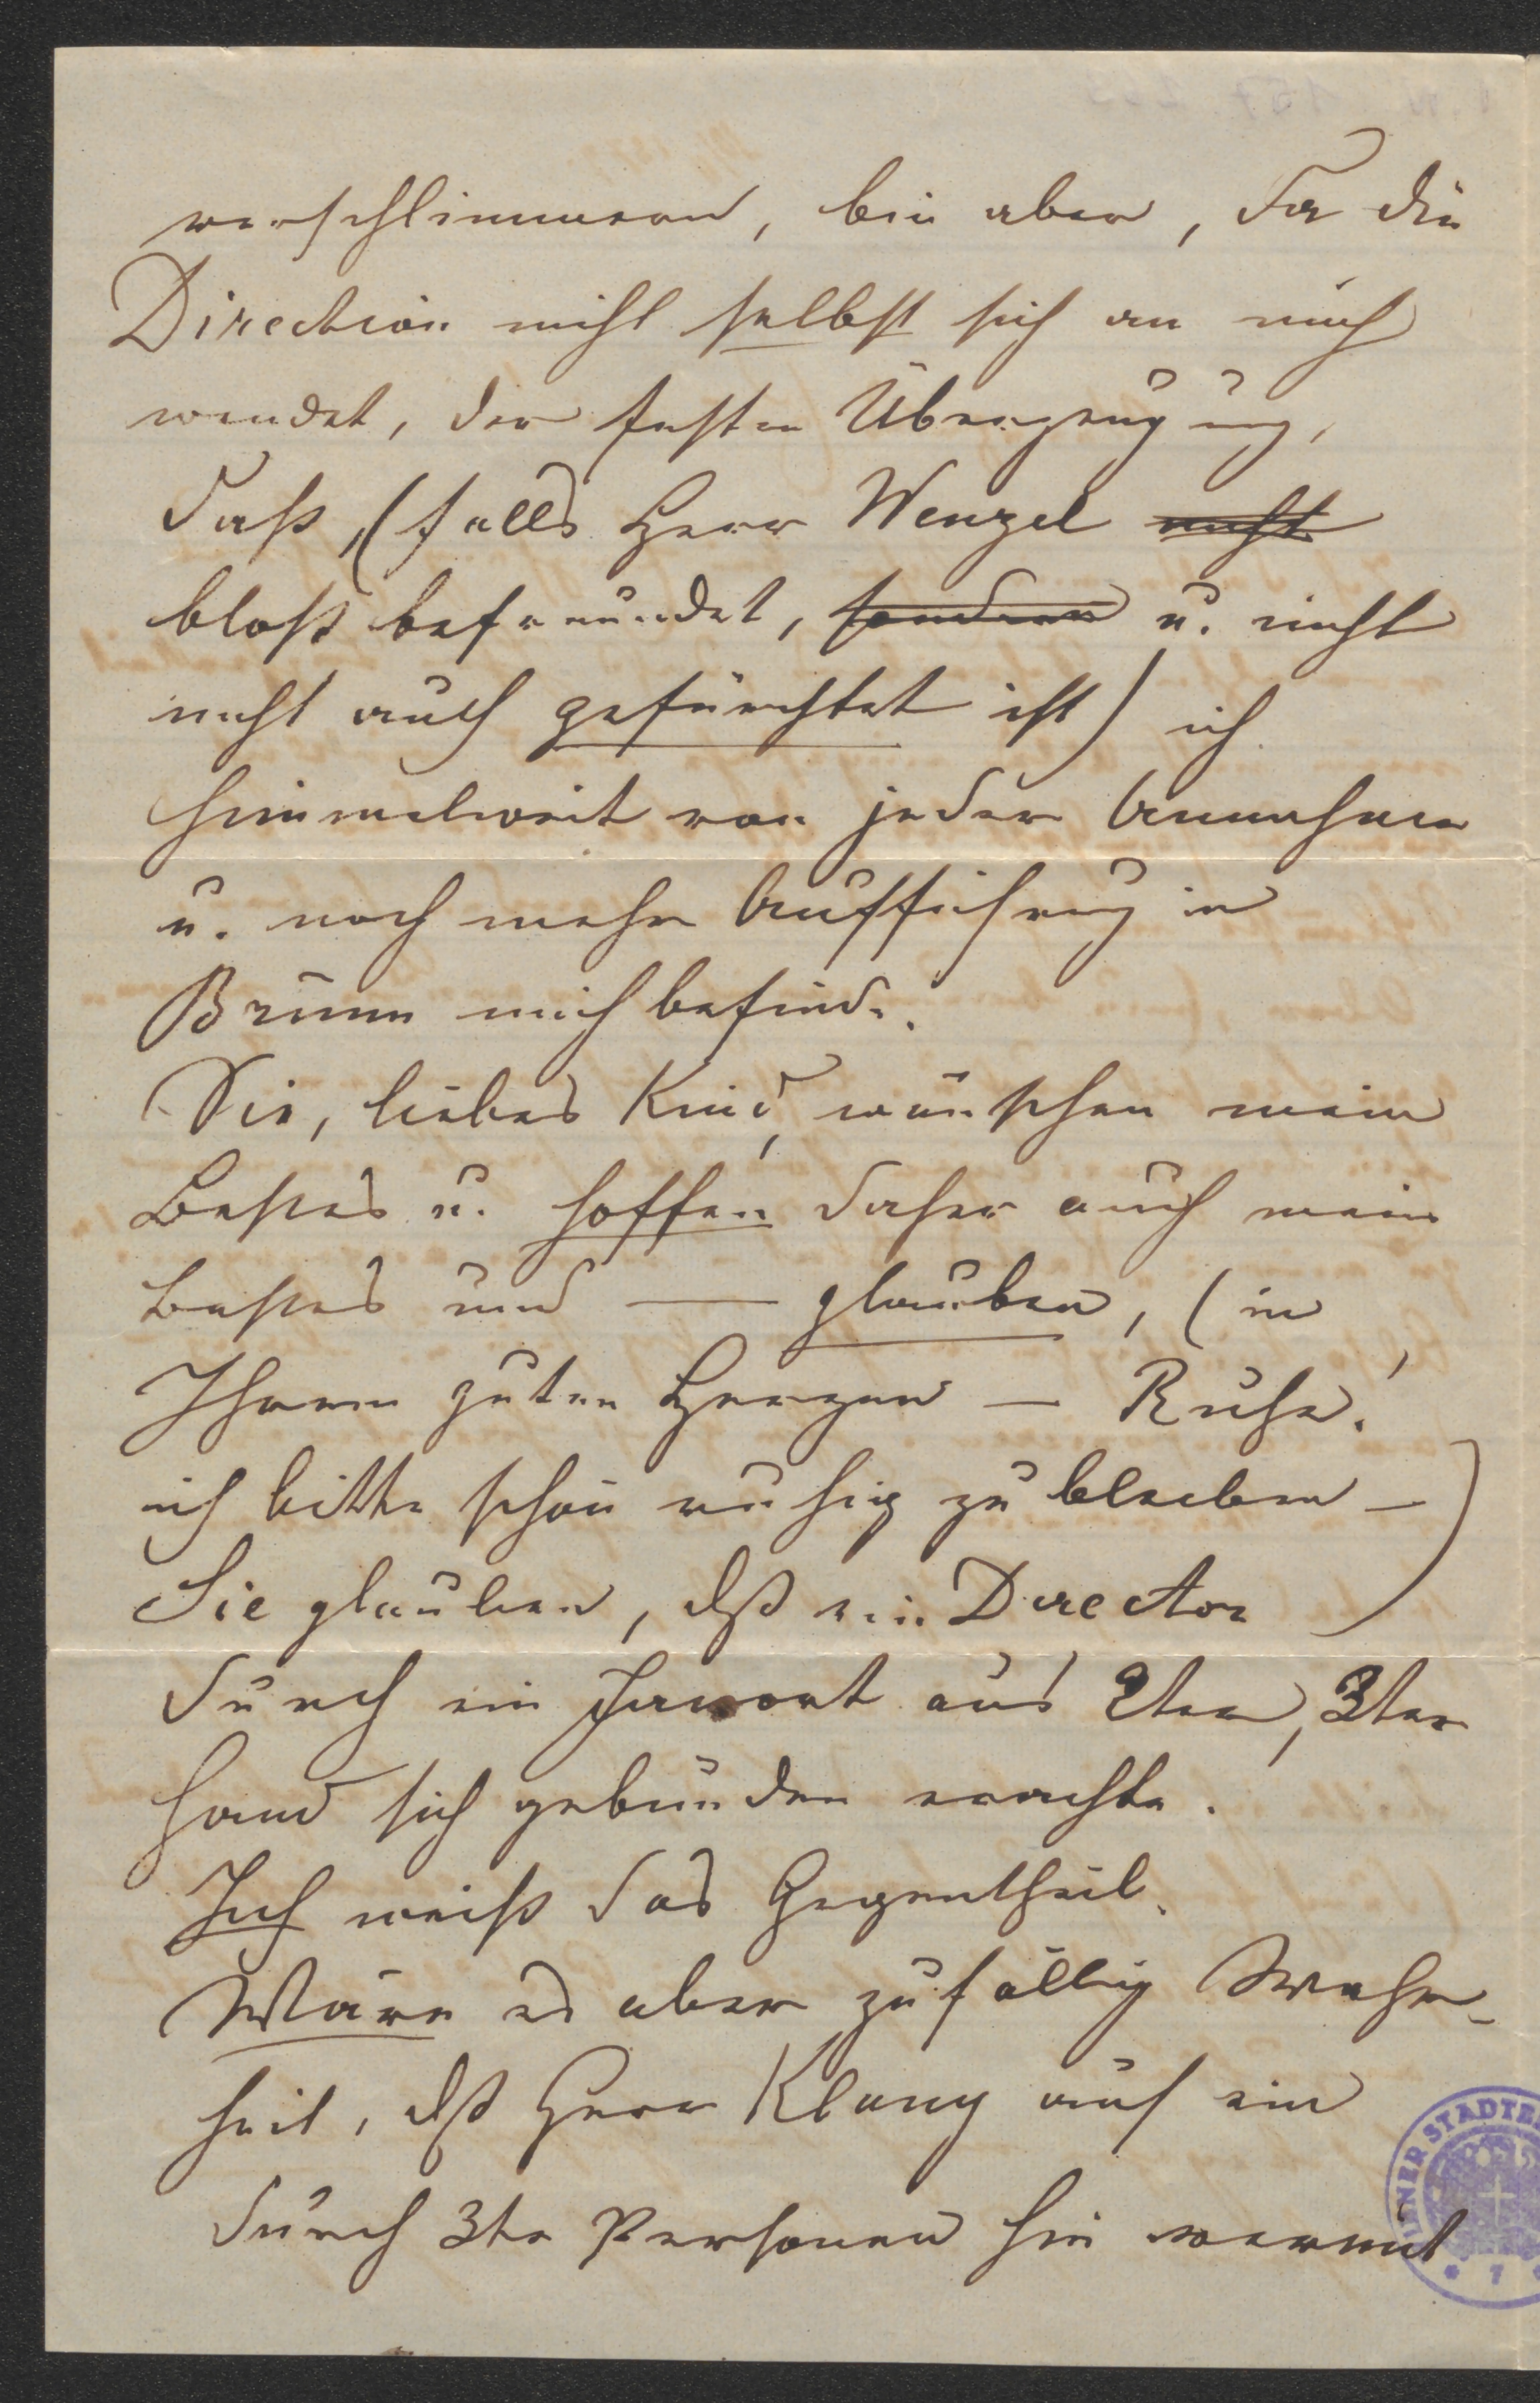 verschlimmern, bin aber, da die
Direction nicht selbst sich an mich
wendet, der festen Überzeugung,
daß, (falls Herr Wenzel nicht
bloß befreundet, sondern u. nicht
nicht auch gefürchtet ist) ich
himmelweit von jeder Annahme
u. noch mehr Aufführung in
Brünn mich befinde.
Sie, liebes Kind, wünschen mein
Bestes u. hoffen daher auch mein
Bestes und — glauben, (in
Ihrem guten Herzen — Ruhe!
ich bitte schön ruhig zu bleiben —)
Sie glauben, dß ein Director
durch ein Jawort aus 2ter, 3ter
Hand sich gebunden erachte.
Ich weiß das Gegentheil.
Wäre es aber zufällig Wahr-
heit, dß Herr Klang auf ein
durch 3te Personen hin
WIENER STADTBI
* 7 *